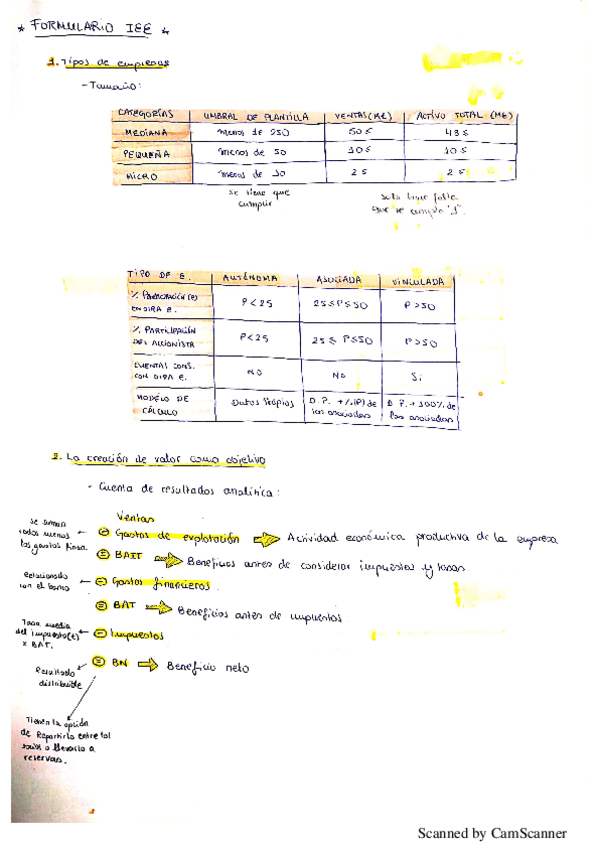 * FORMULARIO IEE *
1. Tipos de empresas
- Tamaño:
CATEGORÍAS UMBRAL DE PLANTILLA VENTAS (M€) ACTIVO TOTAL (M€)
MEDIANA menos de 250 50 ≤ 43 ≤
PEQUEÑA menos de 50 10 ≤ 10 ≤
MICRO menos de 10 2 ≤ 2 ≤
se tiene que cumplir
solo hace falta que se cumple "1".
TIPO DE E. AUTÓNOMA ASOCIADA VINCULADA
% PARTICIPACIÓN (P) EN OTRA E. P < 25 25 ≤ P ≤ 50 P > 50
% PARTICIPACIÓN DEL ACCIONISTA P < 25 25 ≤ P ≤ 50 P > 50
CUENTAS CONS. CON OTRA E. NO NO Sí
MODELO DE CÁLCULO Datos Propios D.P. + % (P) de las asociadas D.P. + 100% de las asociadas
2. La creación de valor como objetivo
- Cuenta de resultados analítica:
Ventas
se suman todos menos los gastos finan. ← - Gastos de explotación ⇒ Actividad económica productiva de la empresa
= BAIT ⇒ Beneficios antes de considerar impuestos y tasas.
Relacionado con el banco ← - Gastos financieros.
= BAT ⇒ Beneficios antes de impuestos
Tasa media del impuesto (t) x BAT. ← - Impuestos
Resultado distribuible ← = BN ⇒ Beneficio neto
Tienen la opción
de Repartirlo entre los
socios o llevarlo a
reservas.
Scanned by CamScanner